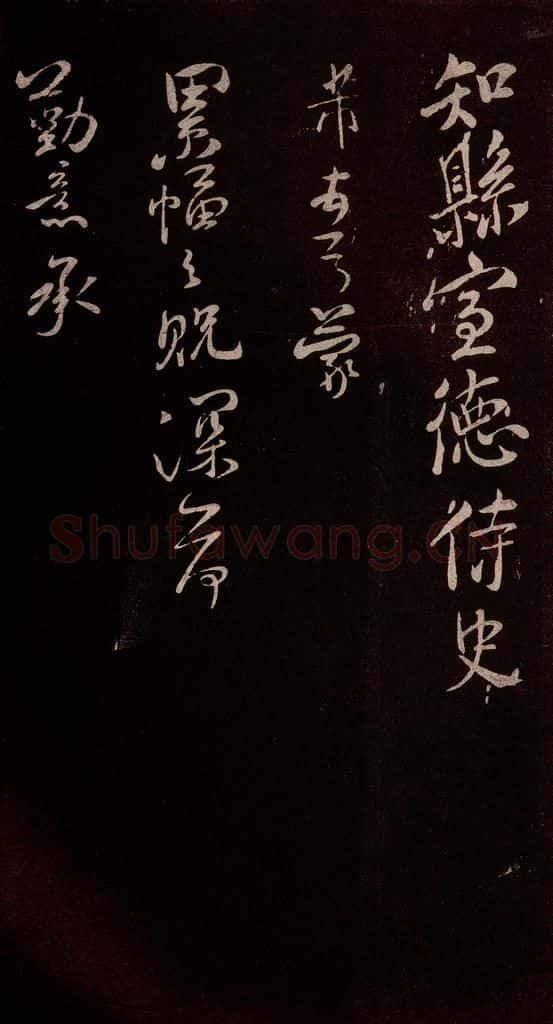 知縣宣德侍史
芾
蒙
累幅之貺深荷
勤意承
Shufawang.cn